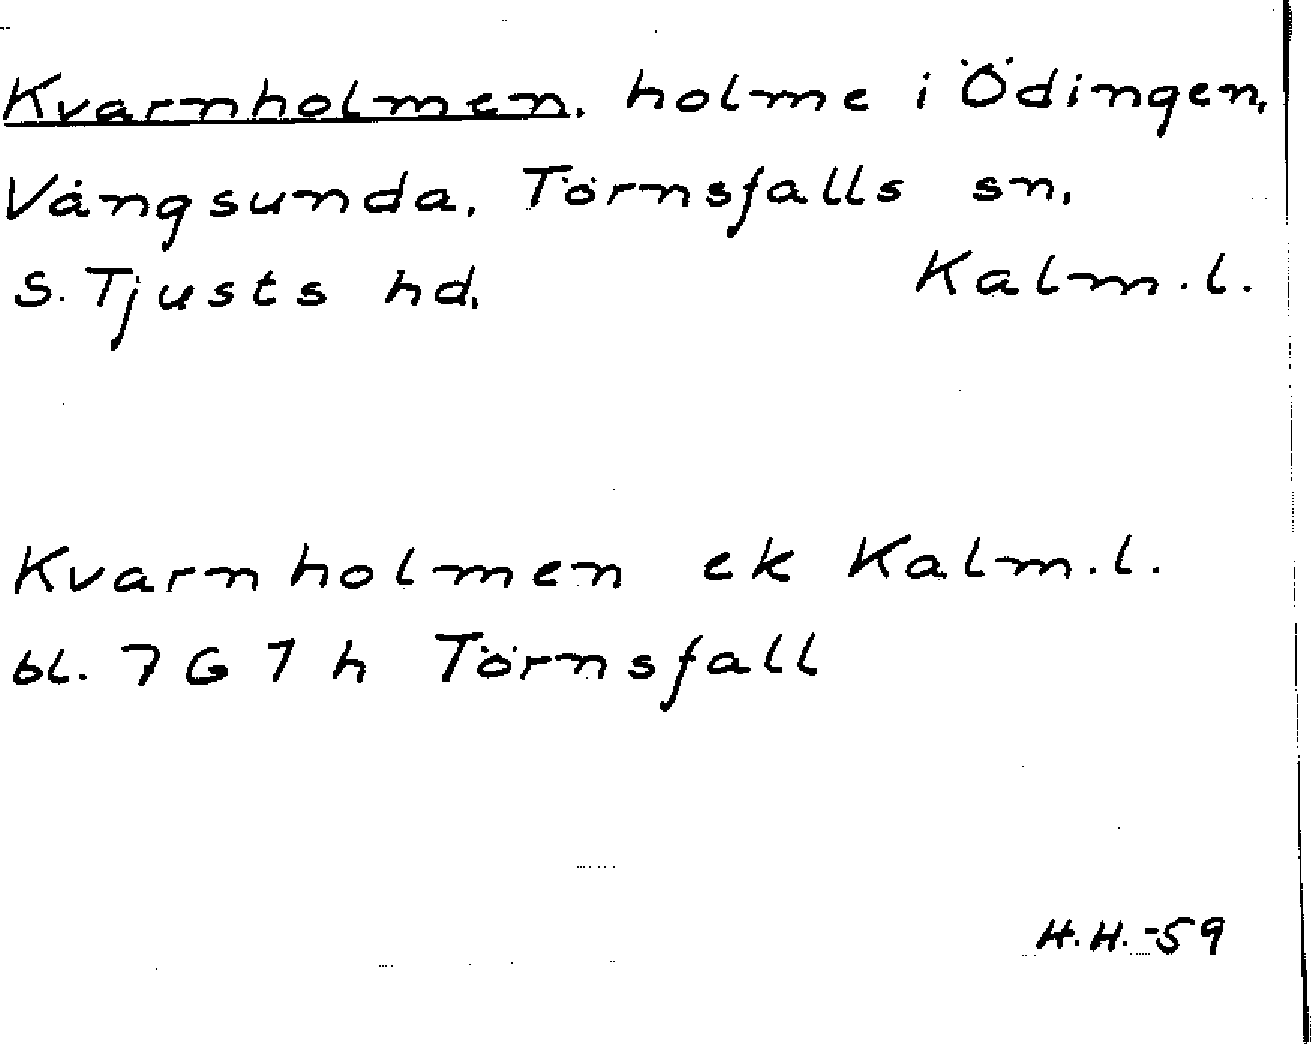 Kvarnholmen, holme i Ödingen,
Vångsunda, Törnsfalls sn,
S. Tjusts hd, Kalm.l.
Kvarnholmen ek Kalm.l.
bl. 7 G 7 h Törnsfall
H.H.-59